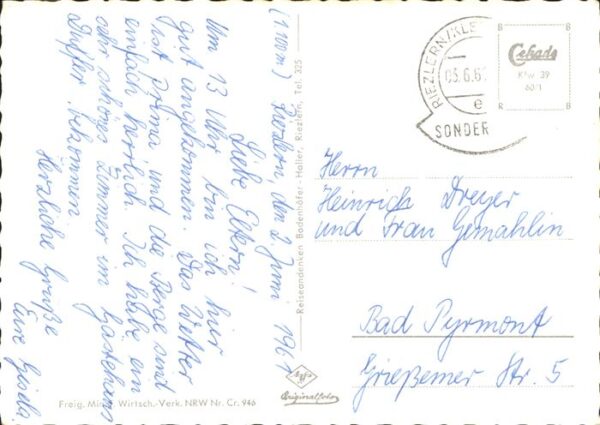 (1100m) Riezlern, den 2. Juni 1961
Liebe Eltern!
Um 13 Uhr bin ich hier
gut angekommen. Das Wetter
ist prima und die Berge sind
einfach herrlich. Ich habe ein
sehr schönes Zimmer im Gästehaus
bekommen.
Herzliche Grüße
Eure Gisela
Reiseandenken Badenhofer-Haller, Riezlern, Tel. 325
Freig. Min. Wirtsch.-Verk. NRW Nr. Cr. 946
Agfa
Originalfoto
RIEZLERN/KLE
e
SONDER
Cekade
KKw 39
Herrn
Heinrich Dreyer
und Frau Gemahlin
Bad Pyrmont
Grießemer Str. 5